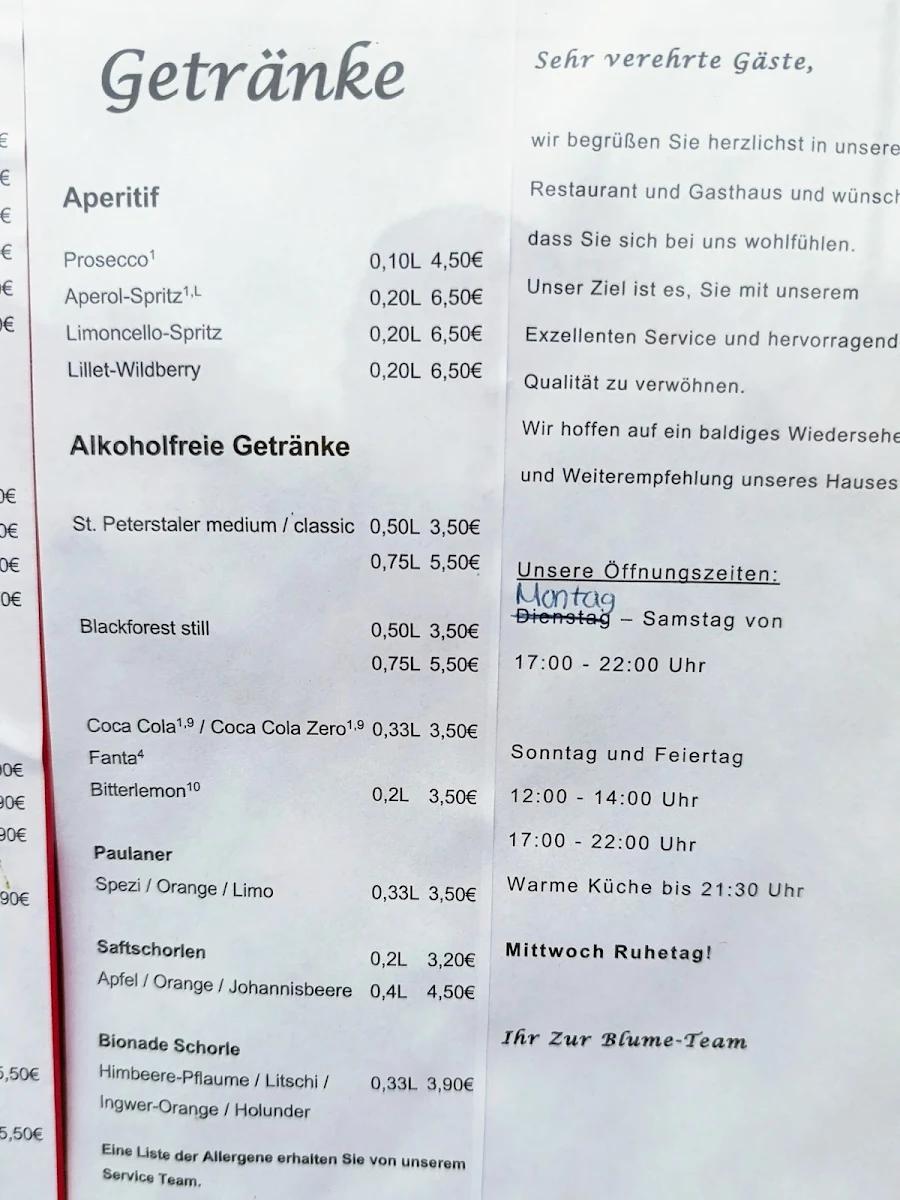 Getränke
Aperitif
Prosecco¹ 0,10L 4,50€
Aperol-Spritz¹,ᴸ 0,20L 6,50€
Limoncello-Spritz 0,20L 6,50€
Lillet-Wildberry 0,20L 6,50€
Alkoholfreie Getränke
St. Peterstaler medium / classic 0,50L 3,50€
0,75L 5,50€
Blackforest still 0,50L 3,50€
0,75L 5,50€
Coca Cola¹,⁹ / Coca Cola Zero¹,⁹ 0,33L 3,50€
Fanta⁴
Bitterlemon¹⁰ 0,2L 3,50€
Paulaner
Spezi / Orange / Limo 0,33L 3,50€
Saftschorlen 0,2L 3,20€
Apfel / Orange / Johannisbeere 0,4L 4,50€
Bionade Schorle
Himbeere-Pflaume / Litschi / 0,33L 3,90€
Ingwer-Orange / Holunder
Eine Liste der Allergene erhalten Sie von unserem
Service Team.
Sehr verehrte Gäste,
wir begrüßen Sie herzlichst in unsere
Restaurant und Gasthaus und wünsch
dass Sie sich bei uns wohlfühlen.
Unser Ziel ist es, Sie mit unserem
Exzellenten Service und hervorragend
Qualität zu verwöhnen.
Wir hoffen auf ein baldiges Wiedersehe
und Weiterempfehlung unseres Hauses
Unsere Öffnungszeiten:
Montag
Dienstag – Samstag von
17:00 - 22:00 Uhr
Sonntag und Feiertag
12:00 - 14:00 Uhr
17:00 - 22:00 Uhr
Warme Küche bis 21:30 Uhr
Mittwoch Ruhetag!
Ihr Zur Blume-Team